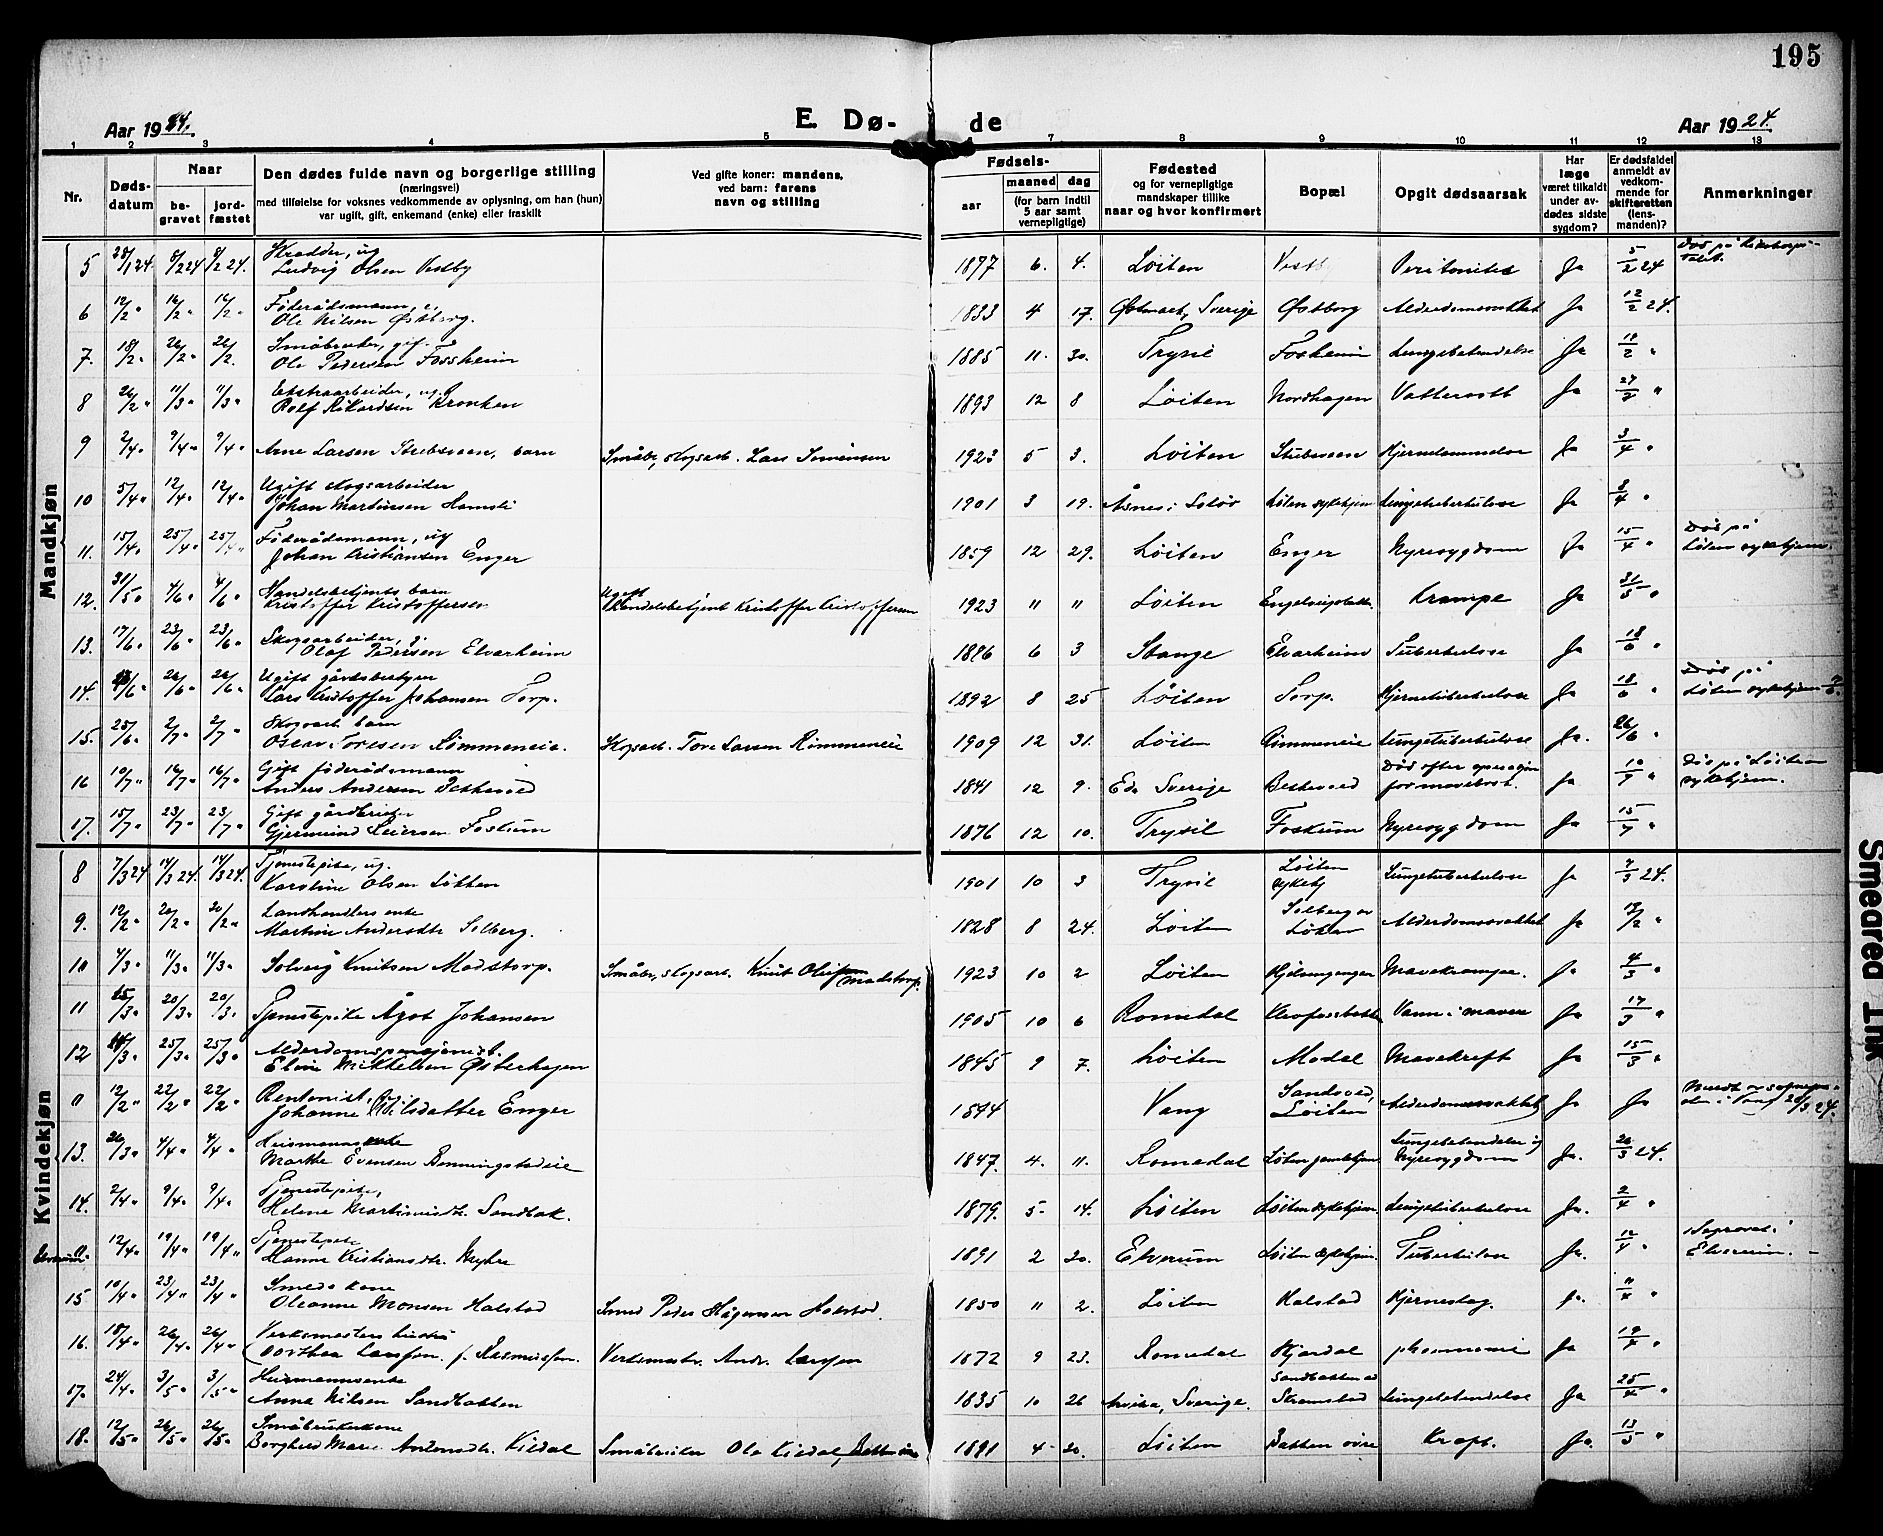 195
Aar 1924.
E. Dø-
de
Aar 1924.
1 2 3 4 5 7 8 9 10 11 12 13
Nr.
Døds-
datum
Naar
be-
gravet
jord-
fæstet
Den dødes fulde navn og borgerlige stilling
(næringsvei)
med tilføielse for voksnes vedkommende av oplysning, om han (hun)
var ugift, gift, enkemand (enke) eller fraskilt
Ved gifte koner: mandens,
ved barn: farens
navn og stilling
Fødsels-
aar
maaned
dag
(for barn indtil
5 aar samt
vernepligtige)
Fødested
og for vernepligtige
mandskaper tillike
naar og hvor konfirmert
Bopæl
Opgit dødsaarsak
Har
læge
været tilkaldt
under av-
dødes sidste
sygdom?
Er dødsfaldet
anmeldt av
vedkom-
mende for
skifteretten
(lens-
manden)?
Anmerkninger
Mandkjøn
5 28/1 24 8/2 24 8/2 24. Skredder, ug
Ludvig Olsen Vestby 1877 6. 4. Løiten Vestby Peritonites Ja 5/2 24
6 12/2 " 16/2 " 16/2 " Føderådsmann,
Ole Nilsen Østborg. 1833 4 17. Østmark, Sverige Østborg Alderdomssvakhet Ja 12/2 24.
7. 18/2 " 26/2 " 26/2. Småbruker, gif.
Ole Pedersen Fossheim 1885 11. 30. Trysil Fosheim Lungebetendelse Ja 18/2 "
8 26/2 " 11/3 " 11/3 " Ekstraarbeider, ug.
Rolf Rikardsen Kronken 1893 12 8 Løiten Nordhagen Vattersott Ja 27/2 "
9 2/4 " 9/4 " 9/4 " Arne Larsen Stubsveen, barn Småbr, skogsarb. Lars Simensen 1923 5 3. Løiten Stubsveen Hjernelammelse Ja 3/4 "
10 5/4 " 12/4 " 12/4 " Ugift skogsarbeider
Johan Martinsen Homsli 1901 3 19. Åsnes i Solør Løten sykehjem Lungetuberkulose Ja 8/4 "
11. 15/4 " 25/4 " 25/4 " Føderådsmann, ug
Johan Kristiansen Enger 1859 12 29. Løiten Enger Nyresygdom Ja 15/4 " Død på
Løten sykehjem.
12. 31/5 " 4/6 " 4/6 " Handelsbetjents barn
Kristoffer Kristoffersen Ugift
Handelsbetjent Kristoffer Kristoffersen 1923 " " Løiten Krampe Ja 31/5 "
13. 17/6 " 23/6 " 23/6 " Skogsarbeider, g.
Olaf Pedersen Elvarheim 1896 6 3 Stange Elvarheim Tuberkulose Ja 18/6 "
14. 26/6 " 26/6 " Ugift gårdsbestyrer
Lars Kristoffer Johansen Torp. 1892 8 25 Løiten Torp. Hjernetuberkulose Ja 18/6 " Død på
Løten sykehjem
15. 25/6 " 2/7 " 2/7 " Skogsarb. barn
Oscar Toresen Rømmeneie. Skogsarb. Tore Larsen Rømmeneie 1909 12 31. Løiten Rømmeneie Lungetuberkulose Ja. 26/6 "
16 10/7 " 16/7 " 16/7 " Gift føderådsmann
Anders Andersen Bekkevold 1841 12 9. Eda Sverige Død efter operasjon
Ja 10/7 " Død på Løiten
sykehjem.
17. 15/7 " 23/7 " 23/7 " Gift gårdbruker
Gjermund Foskum 1876 12 10. Trysil Foskum Nyresygdom Ja 15/7 "
Kvindekjøn
8 7/3 24 14/3 24 14/3 24. Tjenestepike, ug.
Karoline Olsen Løkken 1901 10 3 Trysil Løiten
sykehj Lungetuberkulose Ja 7/3 24.
9. 12/2 " 20/2 " 20/2 " Landhandlers enke
Martine Andersdtr Solberg. 1828 8 24. Løiten Alderdomssvakhet Ja 13/2 "
10 4/3 " 11/3 " 11/3 " Solveig Knutsen Madstorp. Småbr, skogsarb. Knut Olufsen
Madstorp. 1923 10 2 Løiten Mavekrampe. Ja 4/3 "
11 15/3 " 20/3 " 20/3 " Tjenestepike Ågot Johansen 1905 10 6 Romedal Klevfosbakken Vann i maven Ja 17/3 "
12 14/3 " 25/3 " 25/3 " Alderdomspensjonist.
Eline Mikkelsen Østerhagen 1845 9 7. Løiten Modal Mavekreft Ja 15/3 "
0 12/2 " 22/2 " 22/2 " Rentenist,
Johanne Nilsdatter Enger 1844 Vang Sandvold,
Løiten Alderdomssvakhet Ja Ja
13. 26/3 " 4/4 " 4/4 " Husmanns enke
Marthe Evensen Benningstadeie 1847. 4. 11. Romedal Løten gamlehjem Lungebetendelse og
Nyresygdom Ja. 26/3 24.
14. 2/4 " 9/4 " 9/4 " Tjenestepike,
Helene Martinusdtr. Sandbak. 1879. 5. 14. Løiten Løiten sykehjem Lungetuberkulose Ja. 2/4 "
Elverum. 0. 12/4 " 19/4 " 19/4 " Tjenestepike
Hanne Kristiansdtr. Myhre 1891 2 20. Elverum Løiten sykehjem. Tuberkulose Ja. 12/4 " Begravet i
Elverum.
15 10/4 " 23/4 " 23/4 " Smeds kone
Oleanne Monsen Halstad Smed Peder Hågensen Halstad. 1850 11 2. Løiten Halstad Hjerneslag. Ja. 11/4 "
16. 18/4 " 26/4 " 26/4 " Verksmesters hustru
Dorthea Larssen. f. Rasmussen. Verksmester. Andr. Larssen 1872 9 23. Romedal Hjardal Ja 19/4 "
17. 24/4 " 3/5 " 3/5 " Husmannsenke
Anna Nilsen Sandbakken 1835 10 26 Arvika, Sverige. Sandbakken
Skramstad Lungebetendelse Ja 25/4 "
18. 12/5 " 26/5 " 26/5 " Småbrukerkone
Borghild Marie Andersdtr. Kildal Småbruker Ole Kildal, 1891 4 20. Løiten Bakken øvre Kreft. Ja. 13/5 "
Smeared Ink